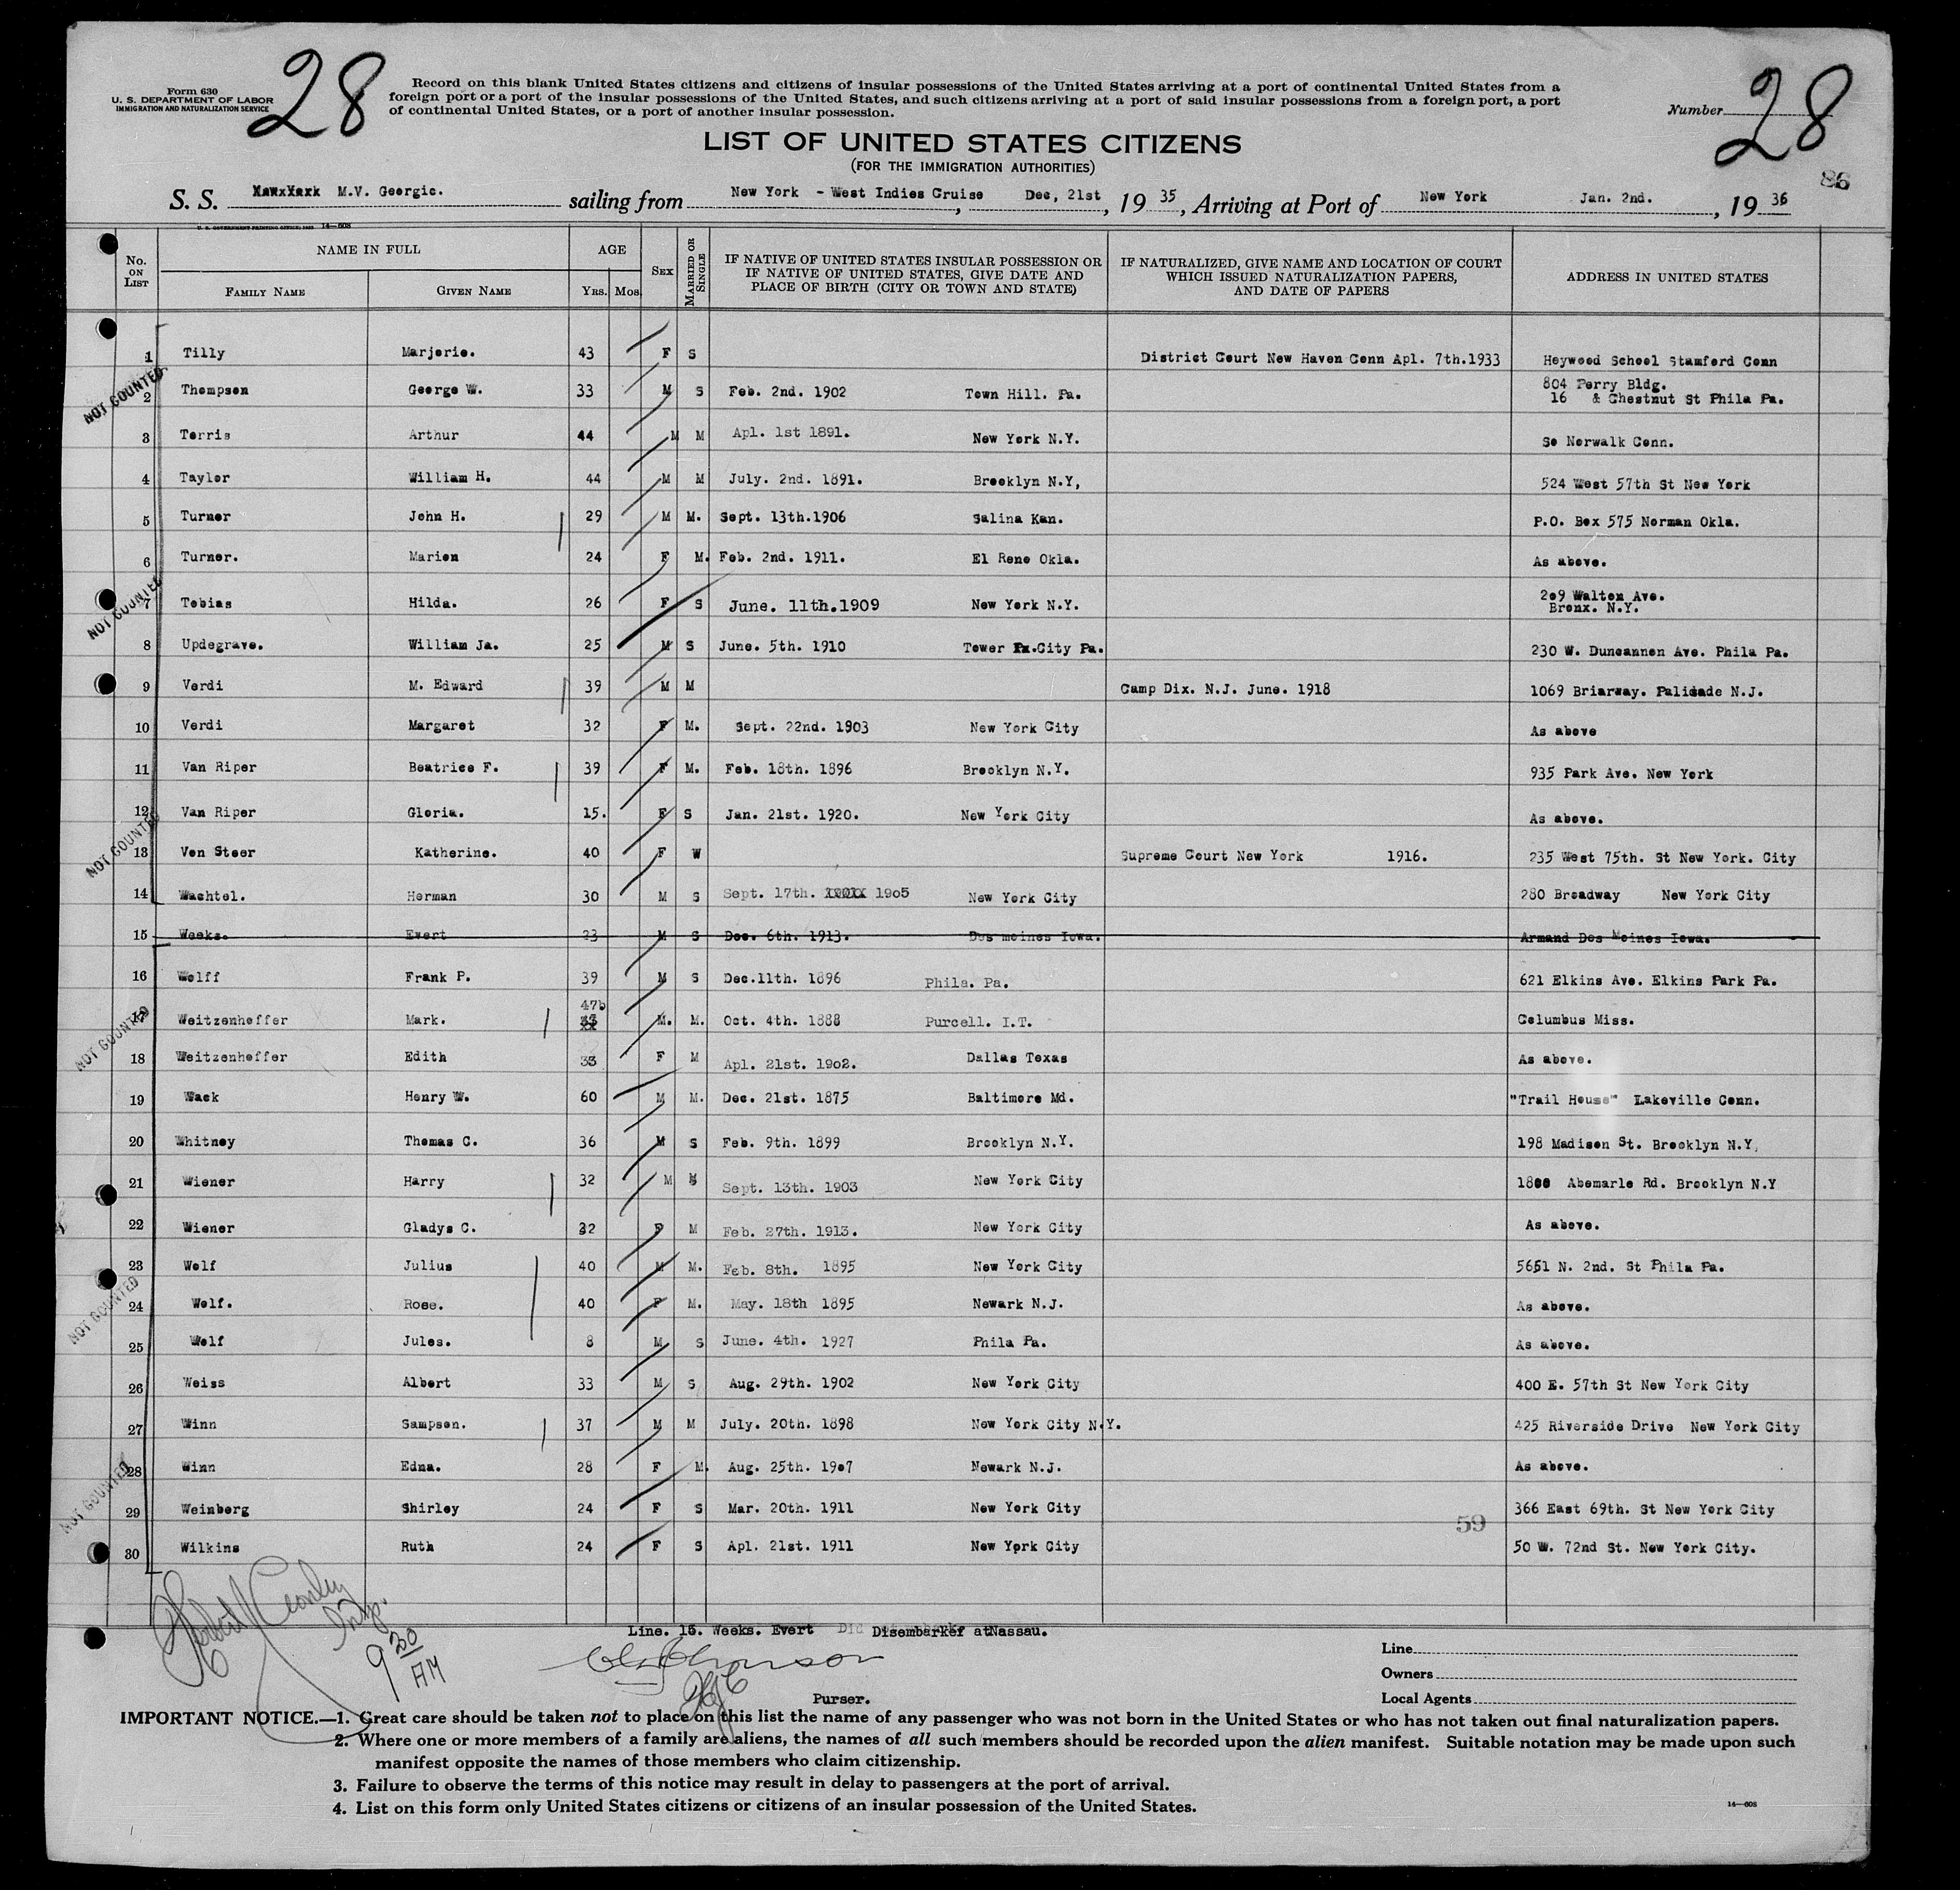 28
Form 630
U. S. DEPARTMENT OF LABOR
IMMIGRATION AND NATURALIZATION SERVICE
Record on this blank United States citizens and citizens of insular possessions of the United States arriving at a port of continental United States from a
foreign port or a port of the insular possessions of the United States, and such citizens arriving at a port of said insular possessions from a foreign port, a port
of continental United States, or a port of another insular possession.
Number 28
LIST OF UNITED STATES CITIZENS
(FOR THE IMMIGRATION AUTHORITIES)
86
S. S. M.V. Georgic. sailing from New York - West Indies Cruise , Dec, 21st , 19 35 , Arriving at Port of New York Jan. 2nd. , 19 36
14—608
No. ON LIST NAME IN FULL AGE SEX MARRIED OR SINGLE IF NATIVE OF UNITED STATES INSULAR POSSESSION OR IF NATIVE OF UNITED STATES, GIVE DATE AND PLACE OF BIRTH (CITY OR TOWN AND STATE) IF NATURALIZED, GIVE NAME AND LOCATION OF COURT WHICH ISSUED NATURALIZATION PAPERS, AND DATE OF PAPERS ADDRESS IN UNITED STATES
FAMILY NAME GIVEN NAME YRS. MOS.
1 Tilly Marjorie. 43 F S District Court New Haven Conn Apl. 7th.1933 Heywood School Stamford Conn
NOT COUNTED
2 Thompson George W. 33 M S Feb. 2nd. 1902 Town Hill. Pa. 804 Perry Bldg.
16 & Chestnut St Phila Pa.
3 Torris Arthur 44 M M Apl. 1st 1891. New York N.Y. So Norwalk Conn.
4 Taylor William H. 44 M M July. 2nd. 1891. Brooklyn N.Y, 524 West 57th St New York
5 Turner John H. 29 M M. Sept. 13th.1906 Salina Kan. P.O. Box 575 Norman Okla.
6 Turner. Marion 24 F M. Feb. 2nd. 1911. El Reno Okla. As above.
NOT COUNTED
7 Tobias Hilda. 26 F S June. 11th.1909 New York N.Y. 209 Walton Ave.
Bronx. N.Y.
8 Updegrave. William Ja. 25 M S June. 5th. 1910 Tower City Pa. 230 W. Duncannon Ave. Phila Pa.
9 Verdi M. Edward 39 M M Camp Dix. N.J. June. 1918 1069 Briarway. Palisade N.J.
10 Verdi Margaret 32 F M. Sept. 22nd. 1903 New York City As above
11 Van Riper Beatrice F. 39 F M. Feb. 18th. 1896 Brooklyn N.Y. 935 Park Ave. New York
12 Van Riper Gloria. 15. F S Jan. 21st. 1920. New York City As above.
NOT COUNTED
13 Von Steer Katherine. 40 F W Supreme Court New York 1916. 235 West 75th. St New York. City
14 Wachtel. Herman 30 M S Sept. 17th. 1905 New York City 280 Broadway New York City
15 Weeks. Evert 23 M S Dec. 6th. 1913. Des moines Iowa. Armand Des Moines Iowa.
16 Wolff Frank P. 39 M S Dec.11th. 1896 Phila. Pa. 621 Elkins Ave. Elkins Park Pa.
NOT COUNTED
17 Weitzenhoffer Mark. 47 M. M. Oct. 4th. 1888 Purcell. I.T. Columbus Miss.
18 Weitzenhoffer Edith 33 F M Apl. 21st. 1902. Dallas Texas As above.
19 Wack Henry W. 60 M M. Dec. 21st. 1875 Baltimore Md. "Trail House" Lakeville Conn.
20 Whitney Thomas C. 36 M S Feb. 9th. 1899 Brooklyn N.Y. 198 Madison St. Brooklyn N.Y.
21 Wiener Harry 32 M M Sept. 13th. 1903 New York City 1800 Abemarle Rd. Brooklyn N.Y
22 Wiener Gladys C. 22 F M Feb. 27th. 1913. New York City As above.
23 Wolf Julius 40 M M. Feb. 8th. 1895 New York City 5651 N. 2nd. St Phila Pa.
NOT COUNTED
24 Wolf. Rose. 40 F M. May. 18th 1895 Newark N.J. As above.
25 Wolf Jules. 8 M S June. 4th. 1927 Phila Pa. As above.
26 Weiss Albert 33 M S Aug. 29th. 1902 New York City 400 E. 57th St New York City
27 Winn Sampson. 37 M M July. 20th. 1898 New York City N.Y. 425 Riverside Drive New York City
NOT COUNTED
28 Winn Edna. 28 F M. Aug. 25th. 1907 Newark N.J. As above.
29 Weinberg Shirley 24 F S Mar. 20th. 1911 New York City 366 East 69th. St New York City
59
30 Wilkins Ruth 24 F S Apl. 21st. 1911 New York City 50 W. 72nd St. New York City.
Insp.
9 30 AM
Line. 15. Weeks. Evert Did Disembarked at Nassau.
Purser.
Line
Owners
Local Agents
IMPORTANT NOTICE.—1. Great care should be taken not to place on this list the name of any passenger who was not born in the United States or who has not taken out final naturalization papers.
2. Where one or more members of a family are aliens, the names of all such members should be recorded upon the alien manifest. Suitable notation may be made upon such
manifest opposite the names of those members who claim citizenship.
3. Failure to observe the terms of this notice may result in delay to passengers at the port of arrival.
4. List on this form only United States citizens or citizens of an insular possession of the United States.
14—608